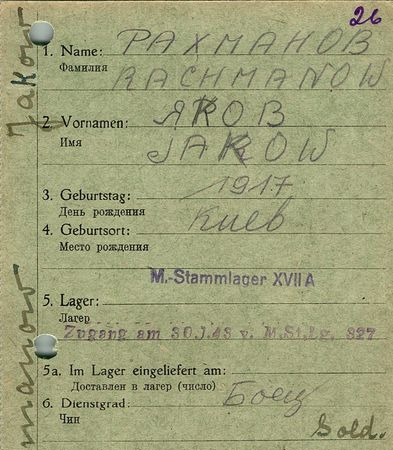 26
1. Name: РАХМАНОВ
Фамилия
RACHMANOW
2. Vornamen: ЯКОВ
Имя
JAKOW
3. Geburtstag: 1917
День рождения
4. Geburtsort: Киев
Место рождения
M.-Stammlager XVII A
5. Lager:
Лагер
Zugang am 30.1.43 v. M.St.Lg. 327
5a. Im Lager eingeliefert am:
Доставлен в лагер (число)
6. Dienstgrad: Боец
Чин
Sold.
Jakow
manow